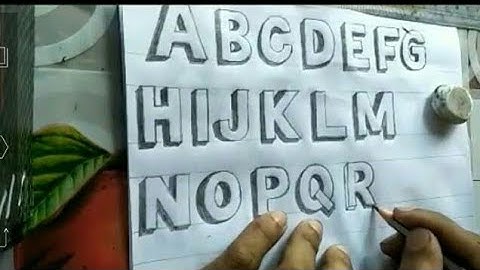 ABCDEFG
HIJKLM
NOPQR